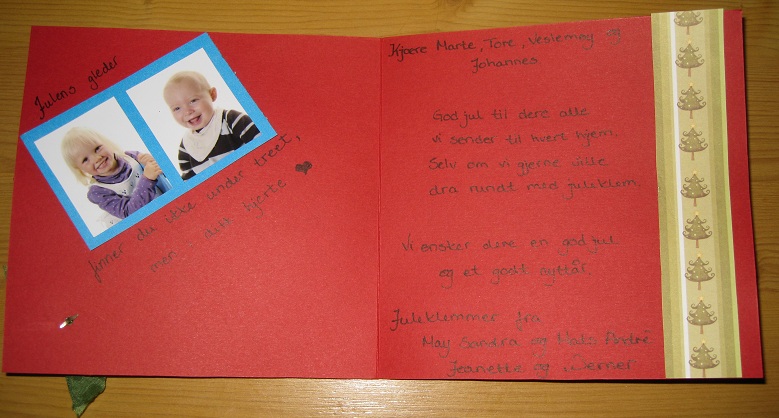 Julens gleder
finner du ikke under treet,
men i ditt hjerte
Kjære Marte, Tore, Veslemøy og
Johannes
God jul til dere alle
vi sender til hvert hjem.
Selv om vi gjerne ville
dra rundt med juleklem.
Vi ønsker dere en god jul
og et godt nyttår.
Juleklemmer fra
May Sandra og Mats André
Jeanette og Werner